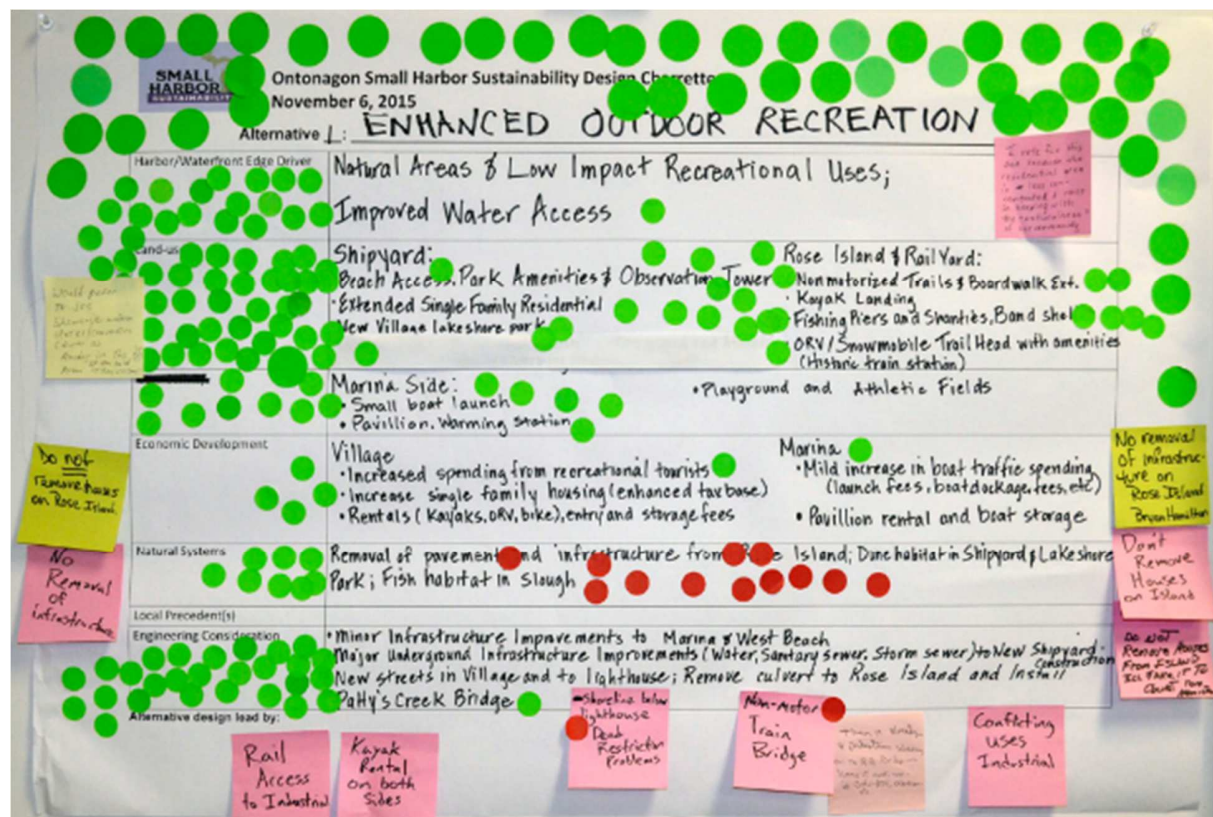 SMALL
HARBOR
SUSTAINABILITY
Ontonagon Small Harbor Sustainability Design Charrette
November 6, 2015
Alternative 1: ENHANCED OUTDOOR RECREATION
Harbor/Waterfront Edge Driver
Natural Areas & Low Impact Recreational Uses;
Improved Water Access
Land-use
Shipyard:
Beach Access, Park Amenities & Observation Tower
· Extended Single Family Residential
New Village lakeshore park
Rose Island & Rail Yard:
Nonmotorized Trails & Boardwalk Ext.
· Kayak Landing
· Fishing Piers and Shanties, Band shell
· ORV/Snowmobile Trail Head with amenities
(Historic train station)
Marina Side:
• Small boat launch
• Pavillion, Warming Station
• Playground and Athletic Fields
Economic Development
Village
• Increased spending from recreational tourists
• Increase single family housing (enhanced tax base)
• Rentals (Kayaks, ORV, bike), entry and storage fees
Marina
• Mild increase in boat traffic spending
(launch fees, boat dockage, fees, etc)
• Pavillion rental and boat storage
Natural Systems
Removal of pavement and infrastructure from Rose Island; Dune habitat in Shipyard & Lakeshore
Park; Fish habitat in Slough
Local Precedent(s)
Engineering Consideration
· Minor Infrastructure Improvements to Marina & West Beach
Major Underground Infrastructure Improvements (Water, Sanitary sewer, Storm sewer) to New Shipyard
Construction
New streets in Village and to lighthouse; Remove culvert to Rose Island and Install
Patty's Creek Bridge
Alternative design lead by:
Would prefer
to see
Do not
remove houses
on Rose Island
No
Removal
of
infrastructure
No removal
of infrastruc-
ture on
Rose Island
Bryan Hamilton
Don't
Remove
Houses
on Island
Do Not
Remove Houses
From Island
Rail
Access
to Industrial
Kayak
Rental
on both
Sides
Shoreline below
lighthouse
Deed
Restriction
Problems
Non-Motor
Train
Bridge
Conflicting
uses
Industrial